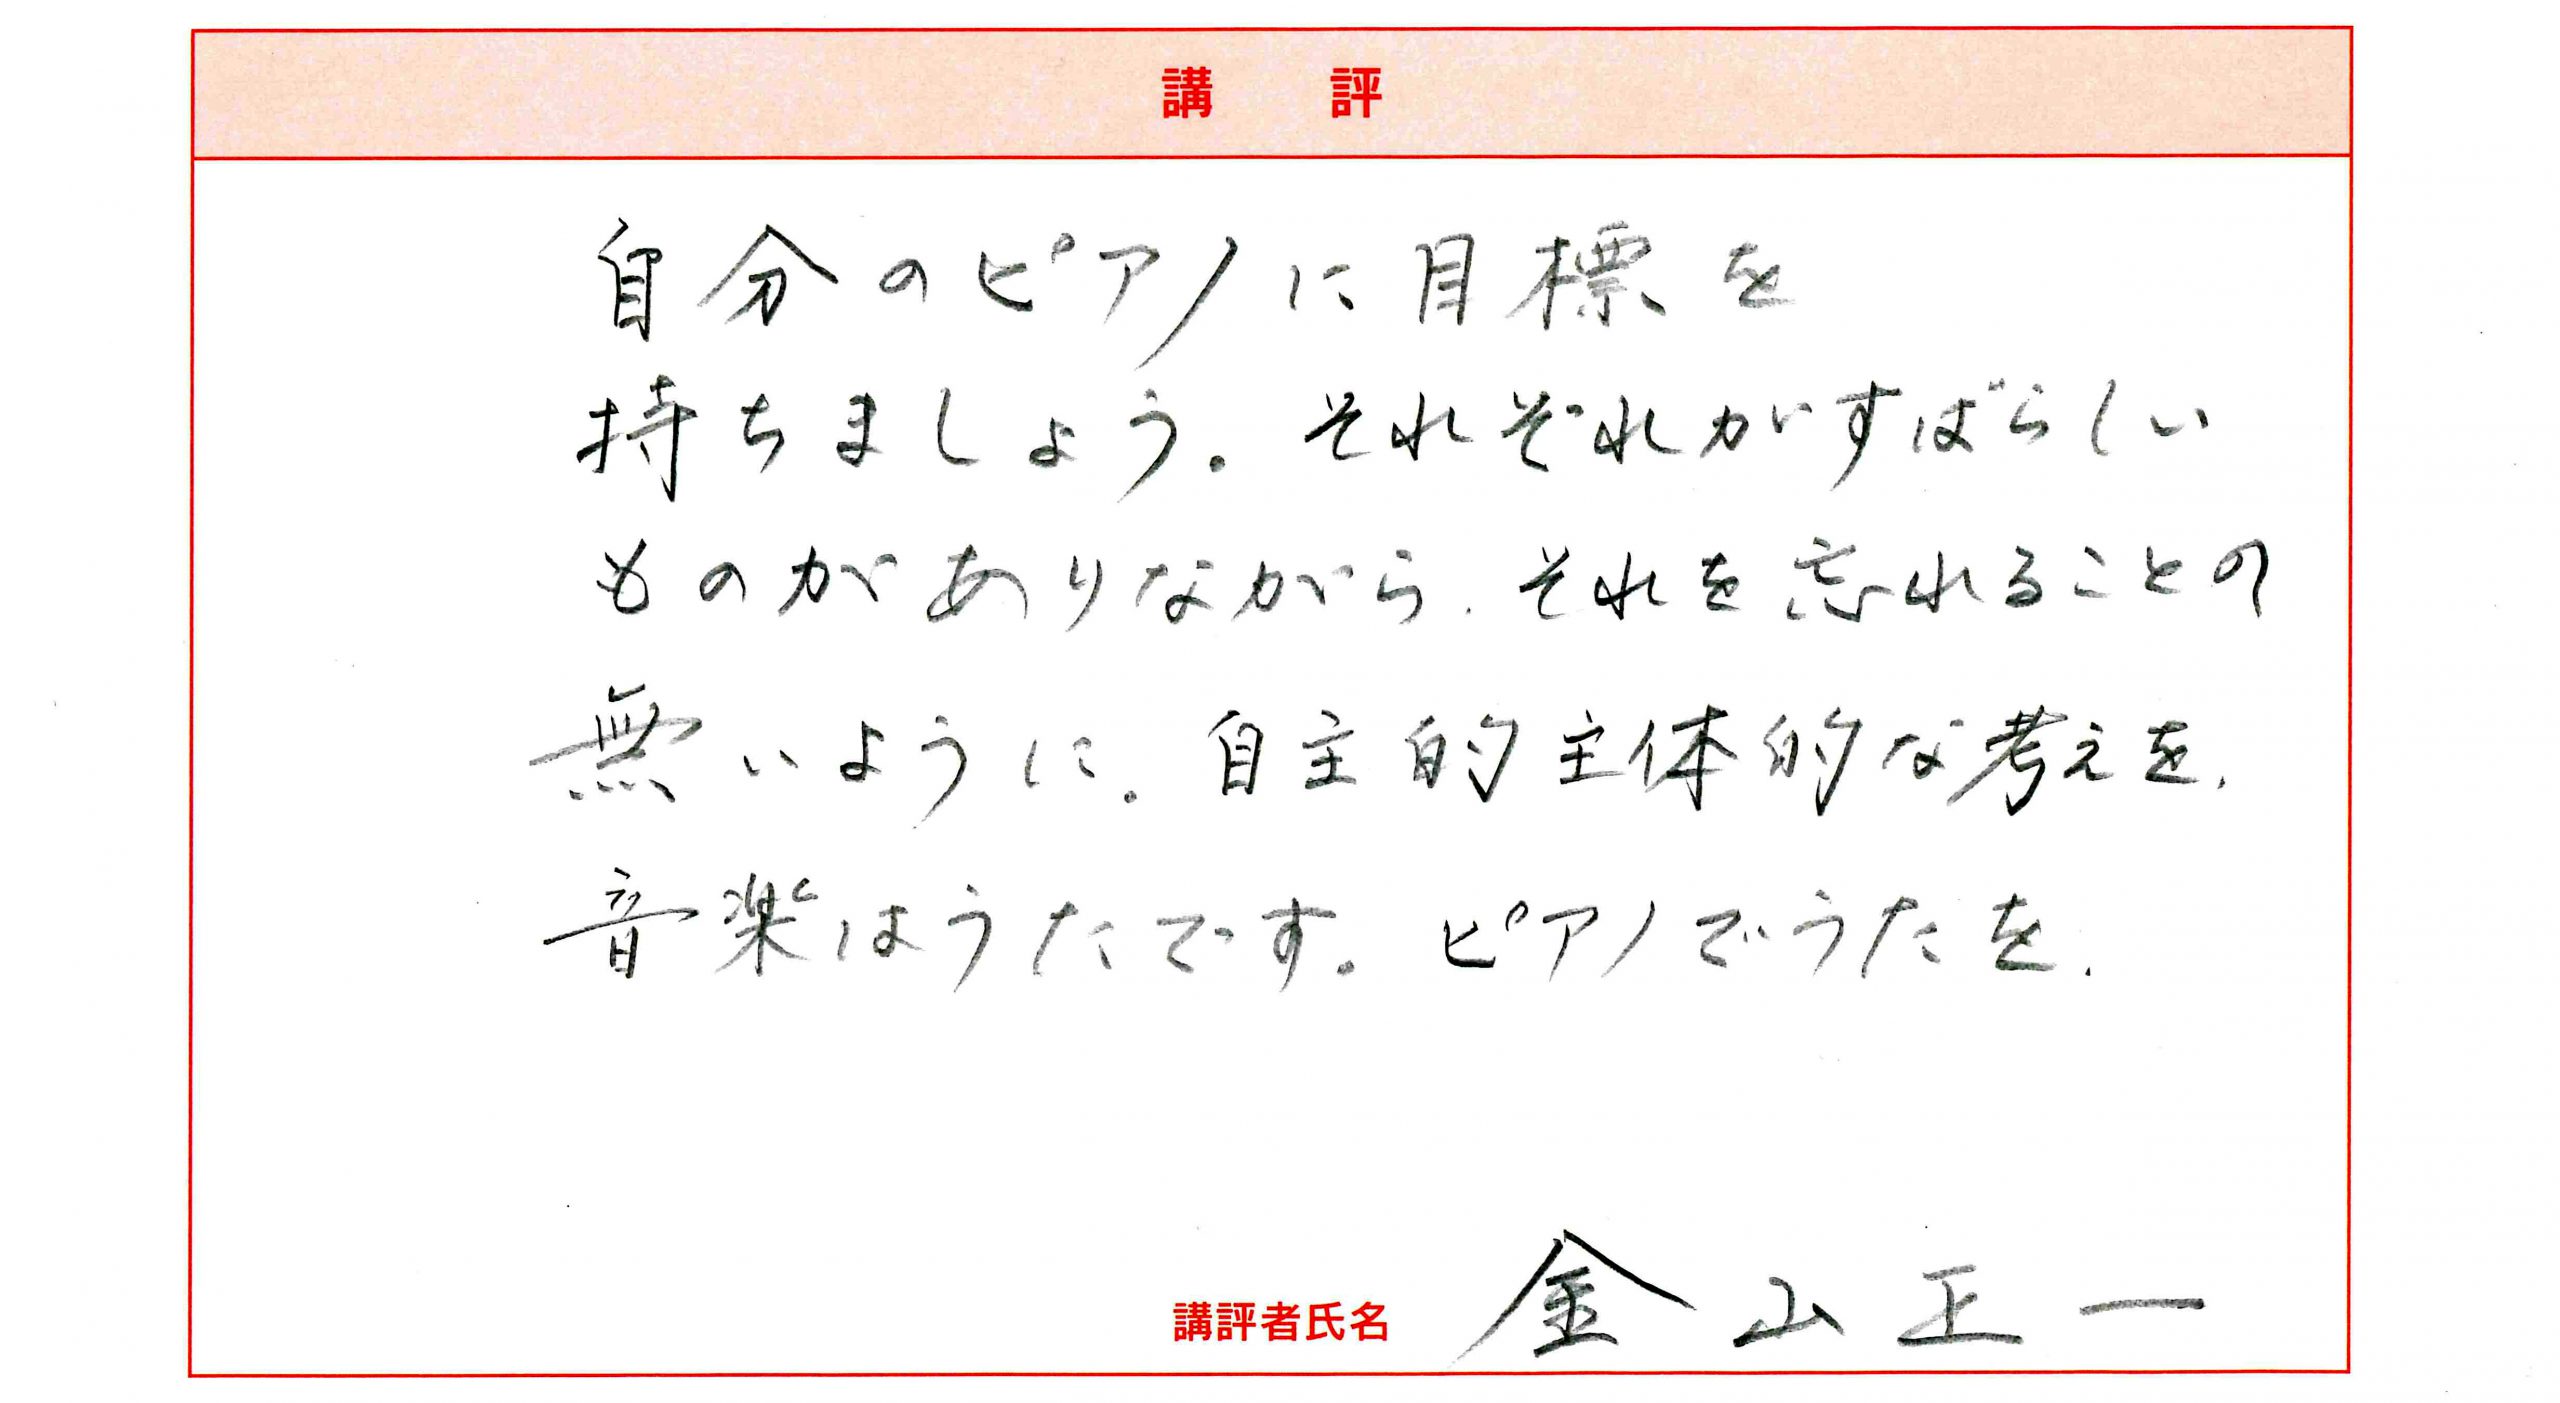 講　評
自分のピアノに目標を
持ちましょう。それぞれがすばらしい
ものがありながら、それを忘れることの
無いように。自主的主体的な考えを、
音楽はうたです。ピアノでうたを、
講評者氏名 金山正一